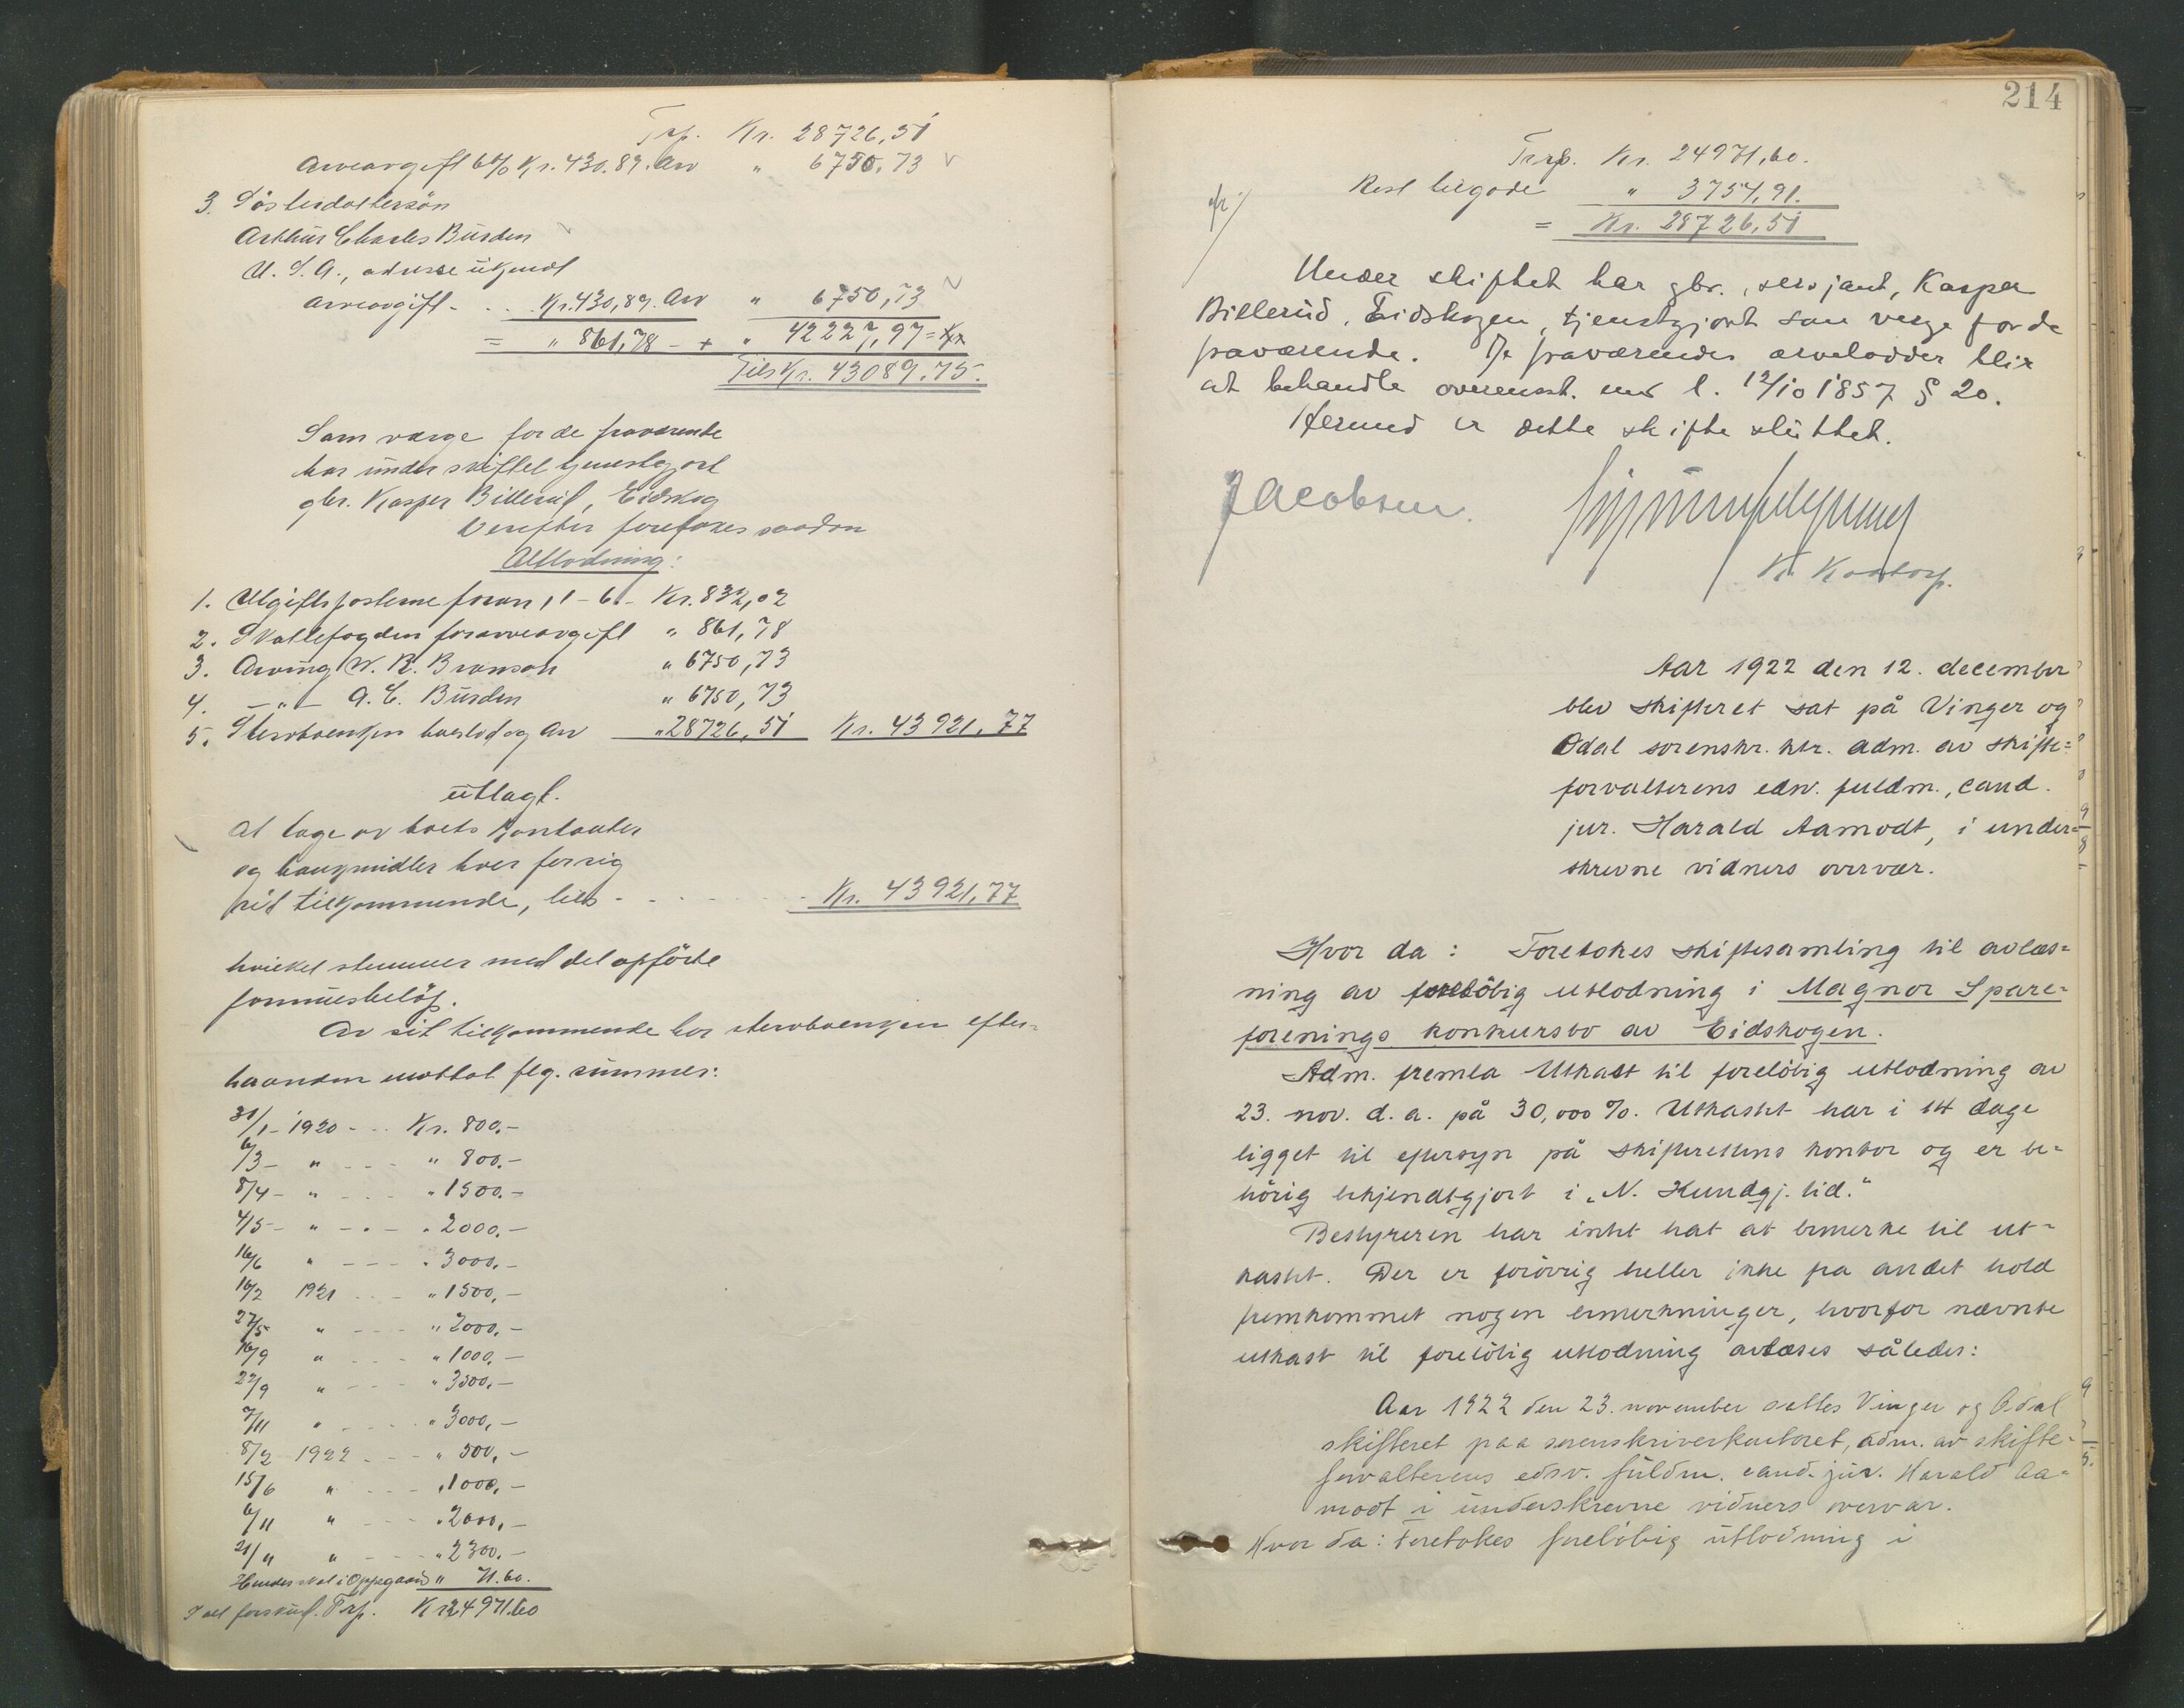 Trp. Kr. 28726,51
Arveavgift 6% Kr. 430.89. Arv " 6750,73
3. Søsterdattersön
Arthur Charles Burden
U. S. A., adresse ukjendt
Arveavgift - . . Kr. 430,89. Arv " 6750,73
= " 861,78 - + " 42227,97 =
Tils Kr. 43089.75.
Som værge for de fraværende
har under skiftet tjenestgjort
gbr. Kasper Billerud, Eidskog
Derefter foretokes saadan
Utlodning:
1. Utgiftsposterne foran, 1 - 6 - Kr. 832,02
2. Skattefogden for arveavgift " 861,78
3. Arving W. R. Bronson " 6750,73
4. - " - A. C. Burden " 6750,73
5. Stervboenken boeslod og Arv " 28726,51 Kr. 43921,77
utlagt.
At tage av boets kontanter
og bankmidler hver for sig
sit tilkommende, tils - . . . Kr. 43921,77
hvilket stemmer med det opförte
formuesbelöp.
Av sit tilkommende har stervboenken efter-
haanden mottat flg. summer:
31/1 - 1920 - . . Kr. 800.-
6/3 - " - - - " 800.-
8/4 - " . . . " 1500.-
4/5 - " - . - " 2000.-
16/6 " - - - " 3000.-
16/2 1921 . . - " 1500,-
27/5 " - - - " 2000,-
16/9 " . . - " 1000,-
22/9 " - - - " 3500,-
7/11 " . . . " 3000,-
8/2 - 1922 . . - " 500,-
15/6 " . . . " 1000,-
6/11 " - - - " 2000,-
21/11 " - - - " 2300.-
Hendes skat i Oppegaard " 71.60.
I alt forskud. Trp. Kr 24971.60
214
Trsp. Kr. 24971,60.
Rest tilgode " 3754,91.
= Kr. 28726,51
Under skiftet har gbr., sersjant, Kasper
Billerud, Eidskogen, tjenstgjort som verge for de
fraværende. De fraværendes arvelodder blir
at behandle overensst. med l. 12/10 1857 § 20.
Hermed er dette skifte sluttet.
Jacobsen.
K. Kaatorp.
Aar 1922 den 12. december
blev skifteret sat på Vinger og
Odal sorenskr. ktr. adm. av skifte=
forvalterens edsv. fuldm., cand.
jur. Harald Aamodt, i under=
skrevne vidners overvær.
Hvor da: Foretokes skiftesamling til avlæs=
ning av foreløbig utlodning i Magnor Spare=
forenings konkursbo av Eidskogen.
Adm. fremla Utkast til foreløbig utlodning av
23. nov. d. a. på 30,000 %. Utkastet har i 14 dage
ligget til eftersyn på skifterettens kontor og er be=
hörig bekjendtgjort i "N. Kundgj. tid."
Bestyreren har intet hat at bemerke til ut=
kastet. Der er forövrig heller ikke fra andet hold
fremkommet nogen bemerkninger, hvorfor nævnte
utkast til forelöbig utlodning avlæses således:
Aar 1922 den 23. november sattes Vinger og Odal
skifteret paa sorenskriverkontoret, adm. av skifte-
forvalterens edsv. fuldm. cand. jur. Harald Aa-
modt i underskrevne vidners overvær.
Hvor da: Foretokes forelöbig utlodning i